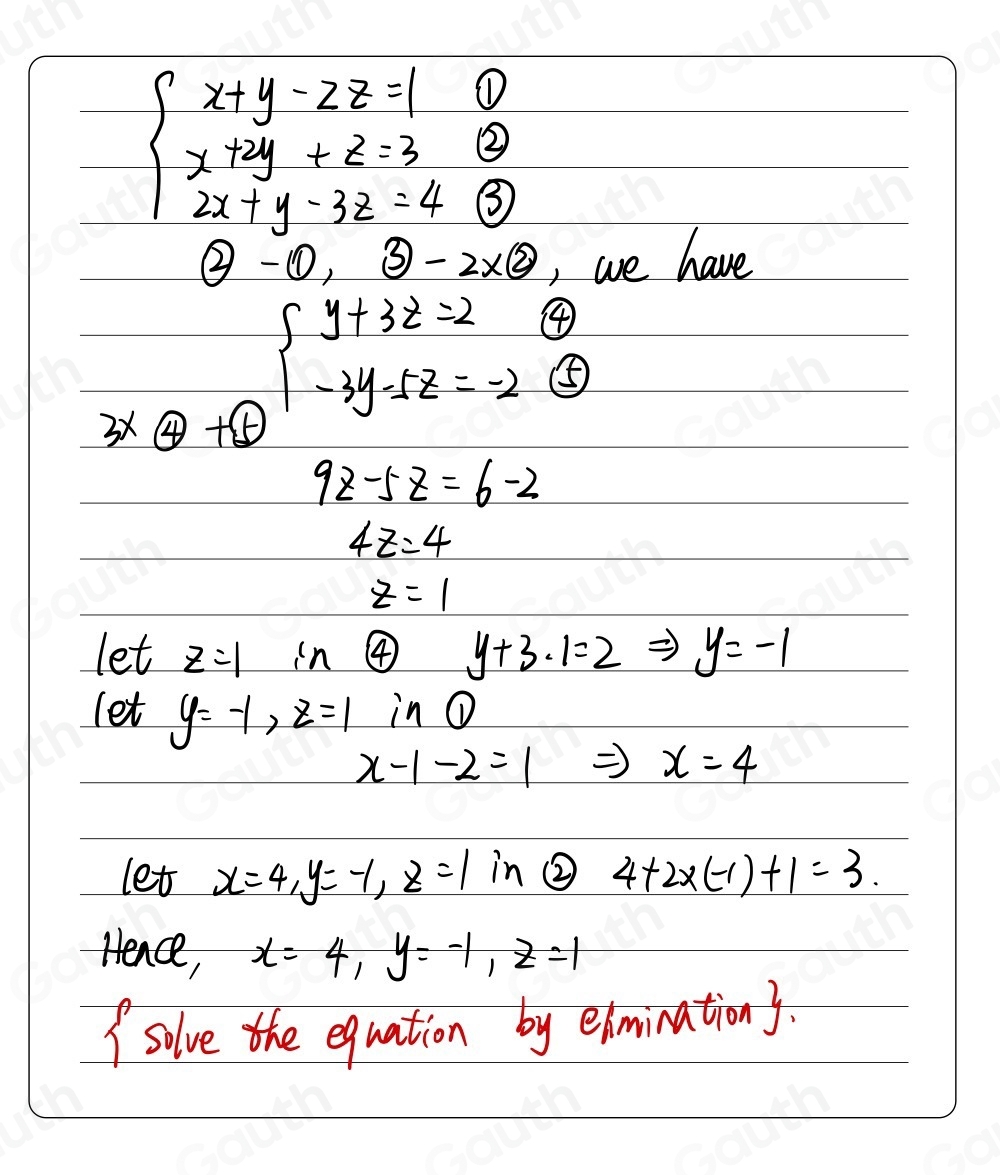 x+y-2z=1 ①
x+2y+z=3 ②
2x+y-3z=4 ③
②-①, ③-2×②, we have
y+3z=2 ④
-3y-5z=-2 ⑤
3×④+⑤
9z-5z=6-2
4z=4
z=1
let z=1 in ④ y+3·1=2 ⇒ y=-1
let y=-1, z=1 in ①
x-1-2=1 ⇒ x=4
let x=4, y=-1, z=1 in ② 4+2×(-1)+1=3.
Hence, x=4, y=-1, z=1
{solve the equation by elimination}.